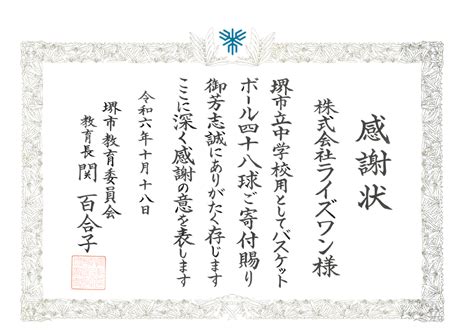 感謝状
株式会社ライズワン様
堺市立中学校用としてバスケット
ボール四十八球ご寄付賜り
御芳志誠にありがたく存じます
ここに深く感謝の意を表します
令和六年十月十八日
堺市教育委員会
教育長 関 百合子